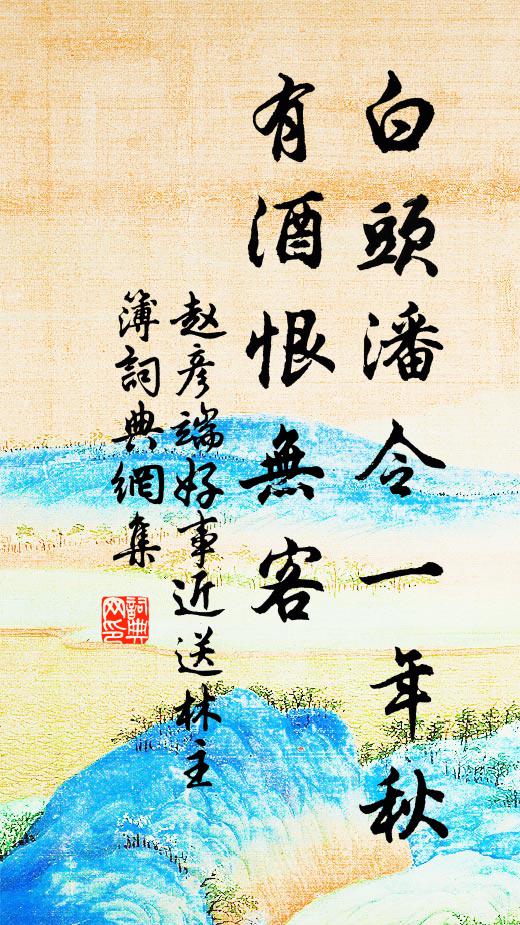 白頭潘令一年秋
有酒恨無客
赵彦端好事近送林主
簿詞典網集
詞典网印